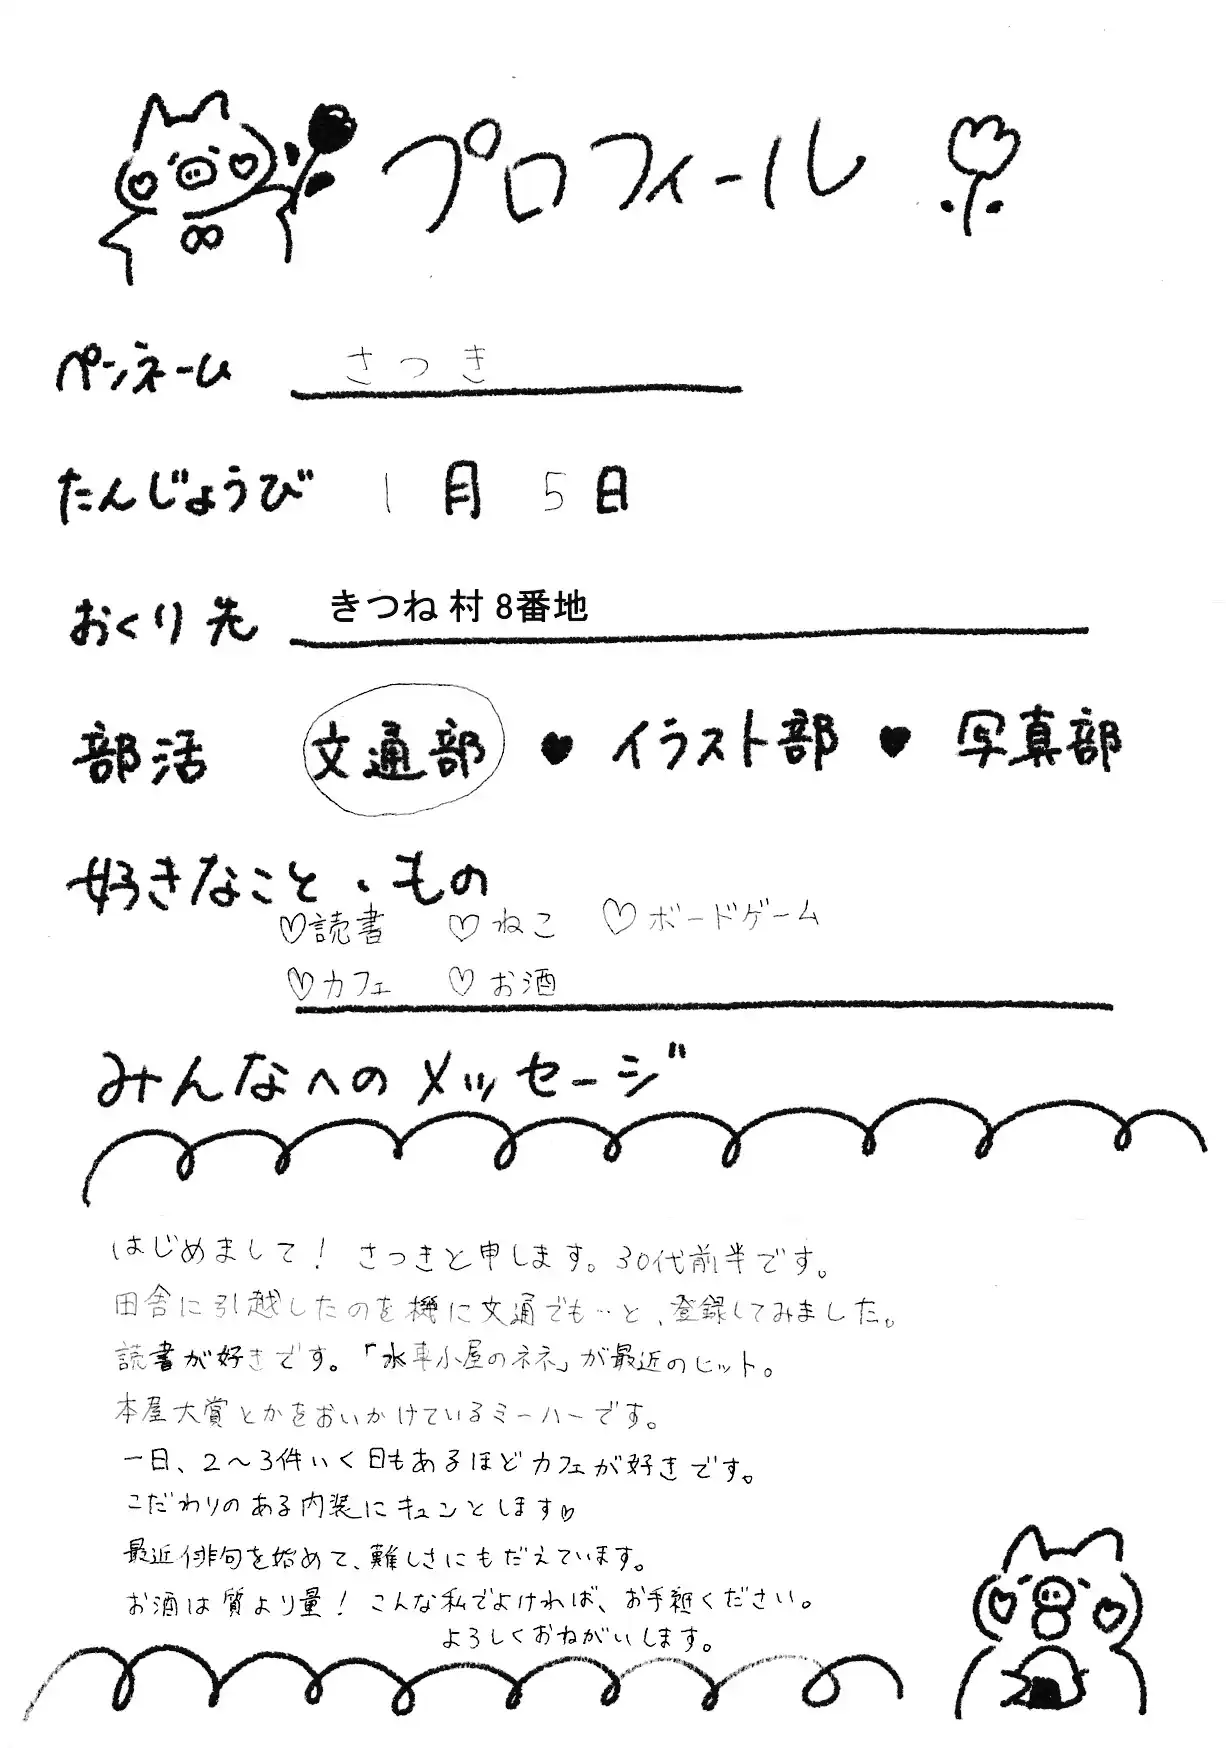 プロフィール
ペンネーム さつき
たんじょうび 1月5日
おくり先 きつね村 8番地
部活 文通部 ♥ イラスト部 ♥ 写真部
好きなこと・もの
♡読書 ♡ねこ ♡ボードゲーム
♡カフェ ♡お酒
みんなへのメッセージ
はじめまして! さつきと申します。30代前半です。
田舎に引越したのを機に文通でも…と、登録してみました。
読書が好きです。「水車小屋のネネ」が最近のヒット。
本屋大賞とかをおいかけているミーハーです。
一日、2〜3件いく日もあるほどカフェが好きです。
こだわりのある内装にキュンとします♡
最近俳句を始めて、難しさにもだえています。
お酒は質より量! こんな私でよければ、お手紙ください。
よろしくおねがいします。